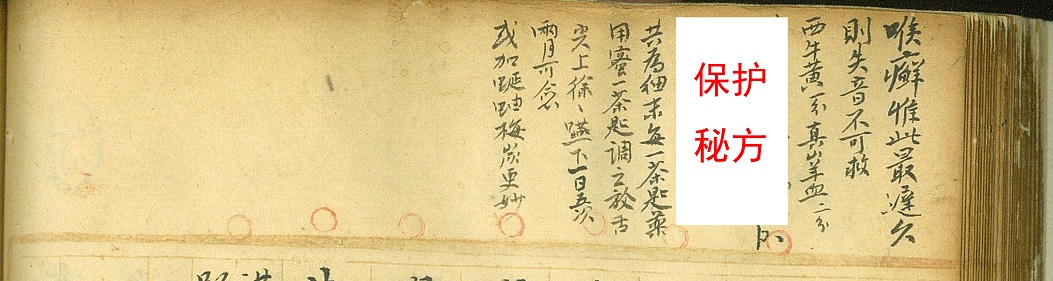 喉癬惟此最遲久
則失音不可救
西牛黃一分真山羊血二分
保护
秘方
共為細末每一茶匙藥
用蜜一茶匙調之放舌
尖上徐〻嚥下一日五次
兩月可愈
或加蜒蚰梅炭更妙